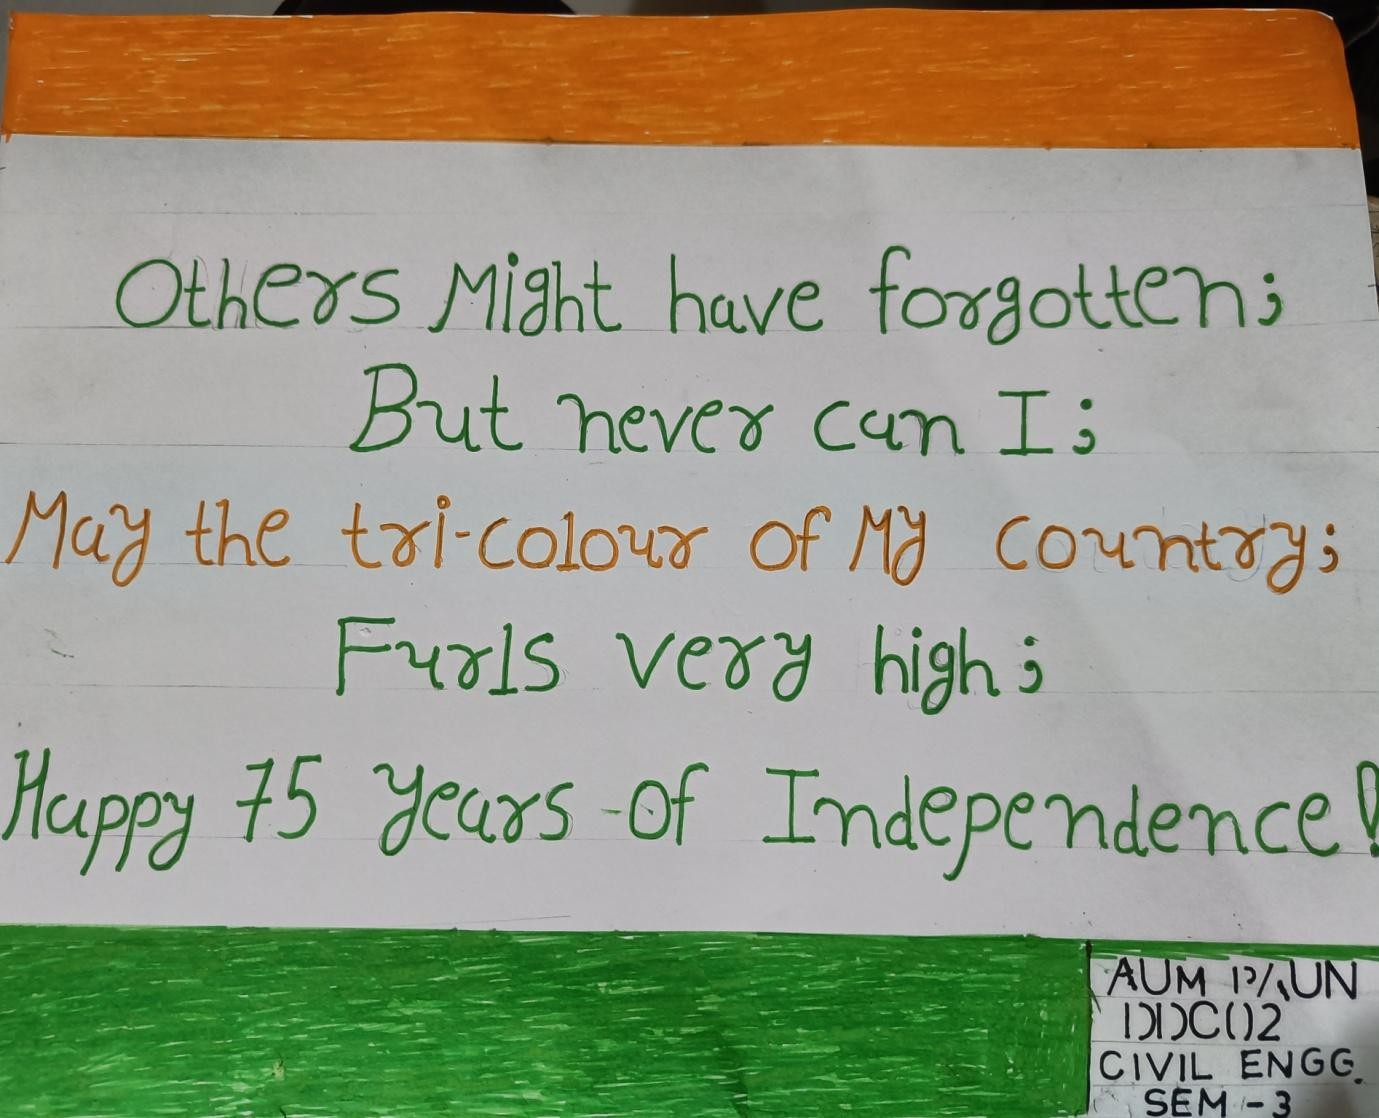 Others Might have forgotten;
But never can I;
May the tri-colour of My country;
Furls very high;
Happy 75 years -of Independence!
AUM
CIVIL ENGG.
SEM -3